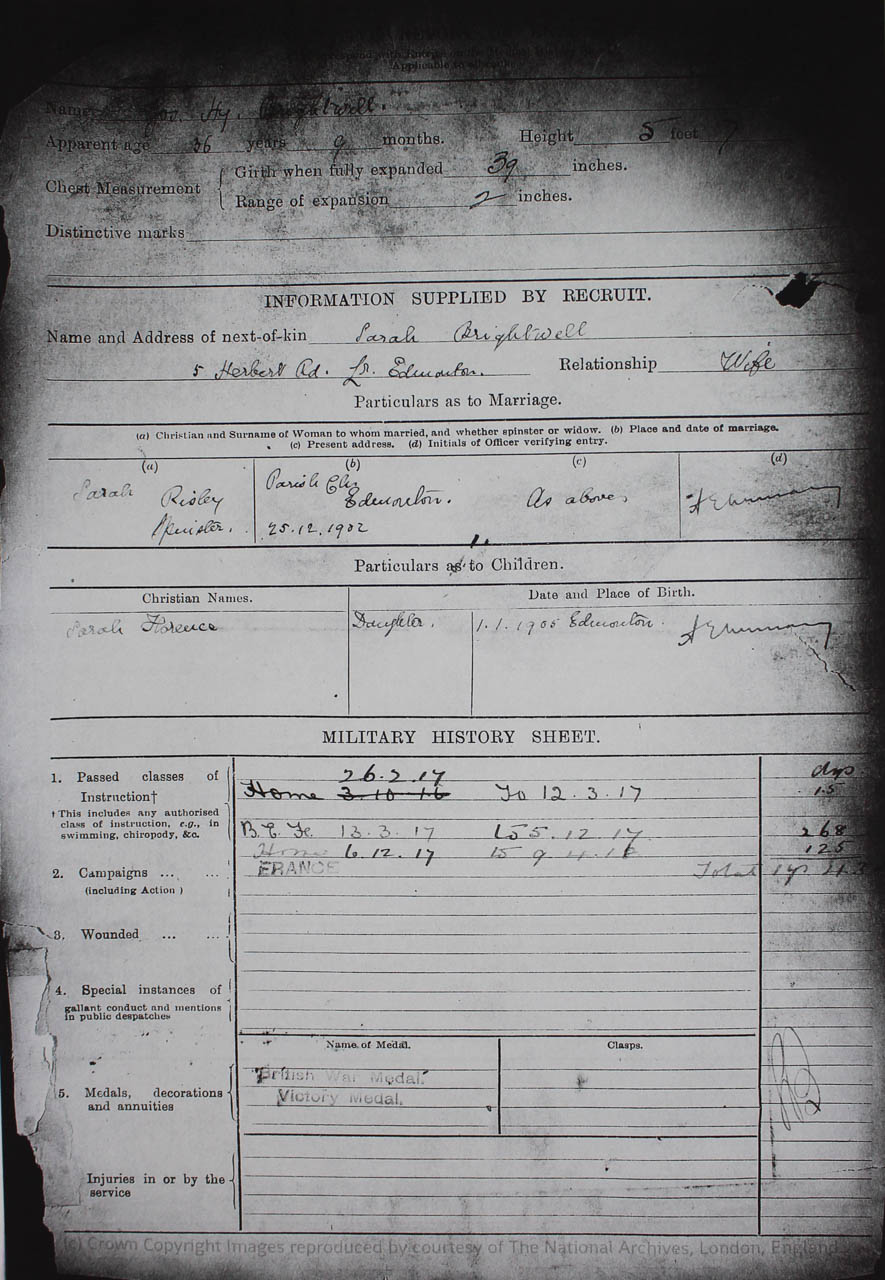 Applicable to all ranks
Name Hy. Brightwell.
Apparent age 36 years 9 months. Height 5 feet 7
Chest Measurement
Girth when fully expanded 39 inches.
Range of expansion 2 inches.
Distinctive marks
INFORMATION SUPPLIED BY RECRUIT.
Name and Address of next-of-kin Sarah Brightwell
5 Herbert Rd. Lr. Edmonton. Relationship Wife
Particulars as to Marriage.
(a) Christian and Surname of Woman to whom married, and whether spinster or widow. (b) Place and date of marriage.
(c) Present address. (d) Initials of Officer verifying entry.
(a) (b) (c) (d)
Sarah Risley Parish Ch. Edmonton. As above,
Spinster. 25.12.1902
Particulars as to Children.
Christian Names. Date and Place of Birth.
Sarah Florence Daughter. 1.1.1905 Edmonton.
MILITARY HISTORY SHEET.
1. Passed classes of Instruction†
† This includes any authorised class of instruction, e.g., in swimming, chiropody, &c.
26.2.17 dys
Home 3 10 16 To 12.3.17 15
B.E.F. 13.3.17 to 5.12.17 268
Home 6.12.17 to 9 4.18 125
FRANCE Total 1 yr 43
2. Campaigns ... ...
(including Action )
3. Wounded ... ...
4. Special instances of
gallant conduct and mentions
in public despatches
Name of Medal. Clasps.
British War Medal.
Victory Medal.
5. Medals, decorations
and annuities
Injuries in or by the
service
(c) Crown Copyright Images reproduced by courtesy of The National Archives, London, England